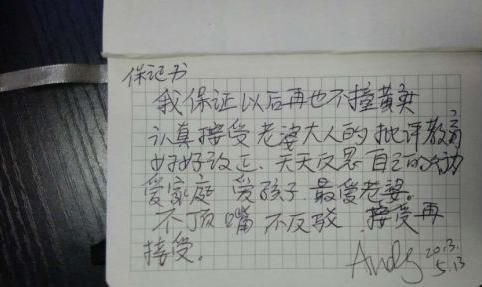 保证书
我保证以后再也不撞黄灯
认真接受老婆大人的批评教育
好好改正.天天反思自己的行为
爱家庭 爱孩子.最爱老婆。
不顶嘴 不反驳.接受再
接受。
Andy 2013.
5.13